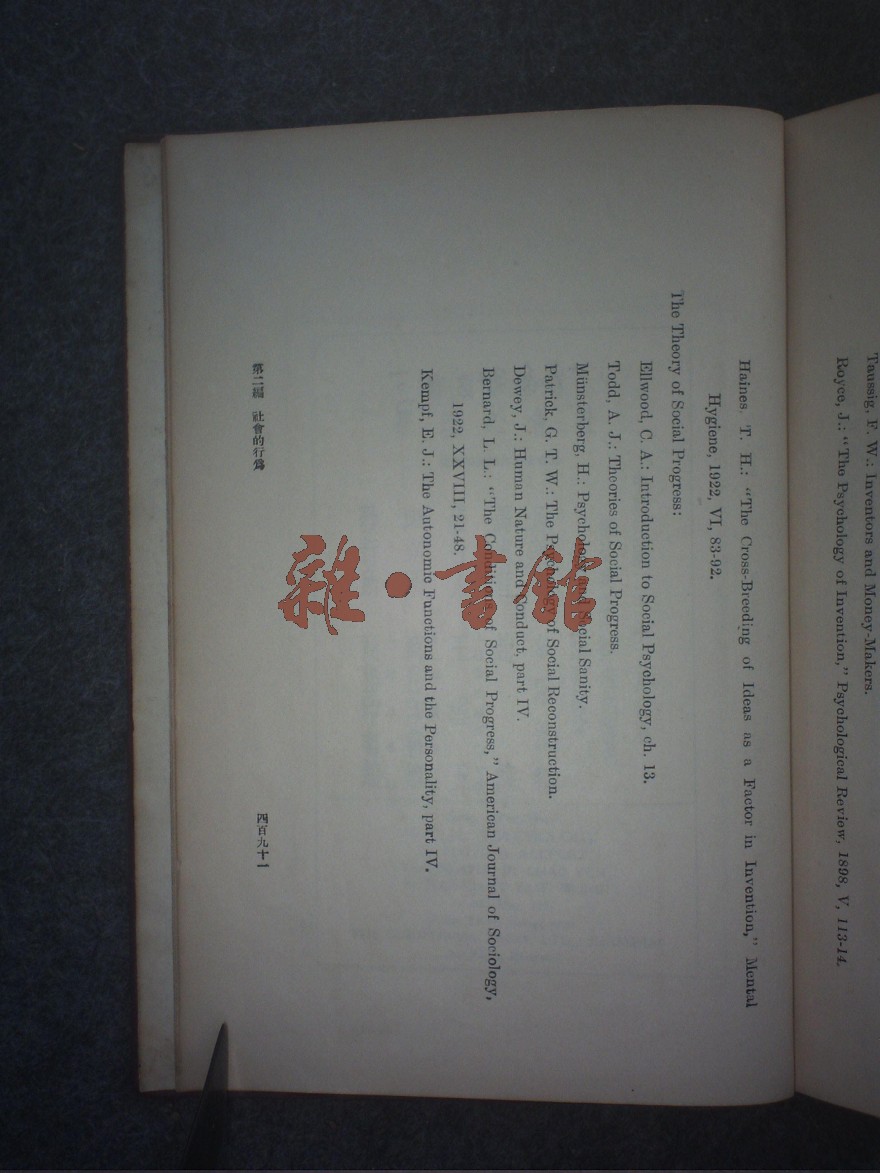 Taussig, F. W.: Inventors and Money-Makers.
Royce, J.: "The Psychology of Invention," Psychological Review, 1898, V, 113-14.
Haines, T. H.: "The Cross-Breeding of Ideas as a Factor in Invention," Mental
Hygiene, 1922, VI, 83-92.
The Theory of Social Progress:
Ellwood, C. A.: Introduction to Social Psychology, ch. 13.
Todd, A. J.: Theories of Social Progress.
Münsterberg, H.: Psychology and Social Sanity.
Patrick, G. T. W.: The Psychology of Social Reconstruction.
Dewey, J.: Human Nature and Conduct, part IV.
Bernard, L. L.: "The Conditions of Social Progress," American Journal of Sociology,
1922, XXVIII, 21-48.
Kempf, E. J.: The Autonomic Functions and the Personality, part IV.
第二編 社會的行爲
四百九十一
雜·書館